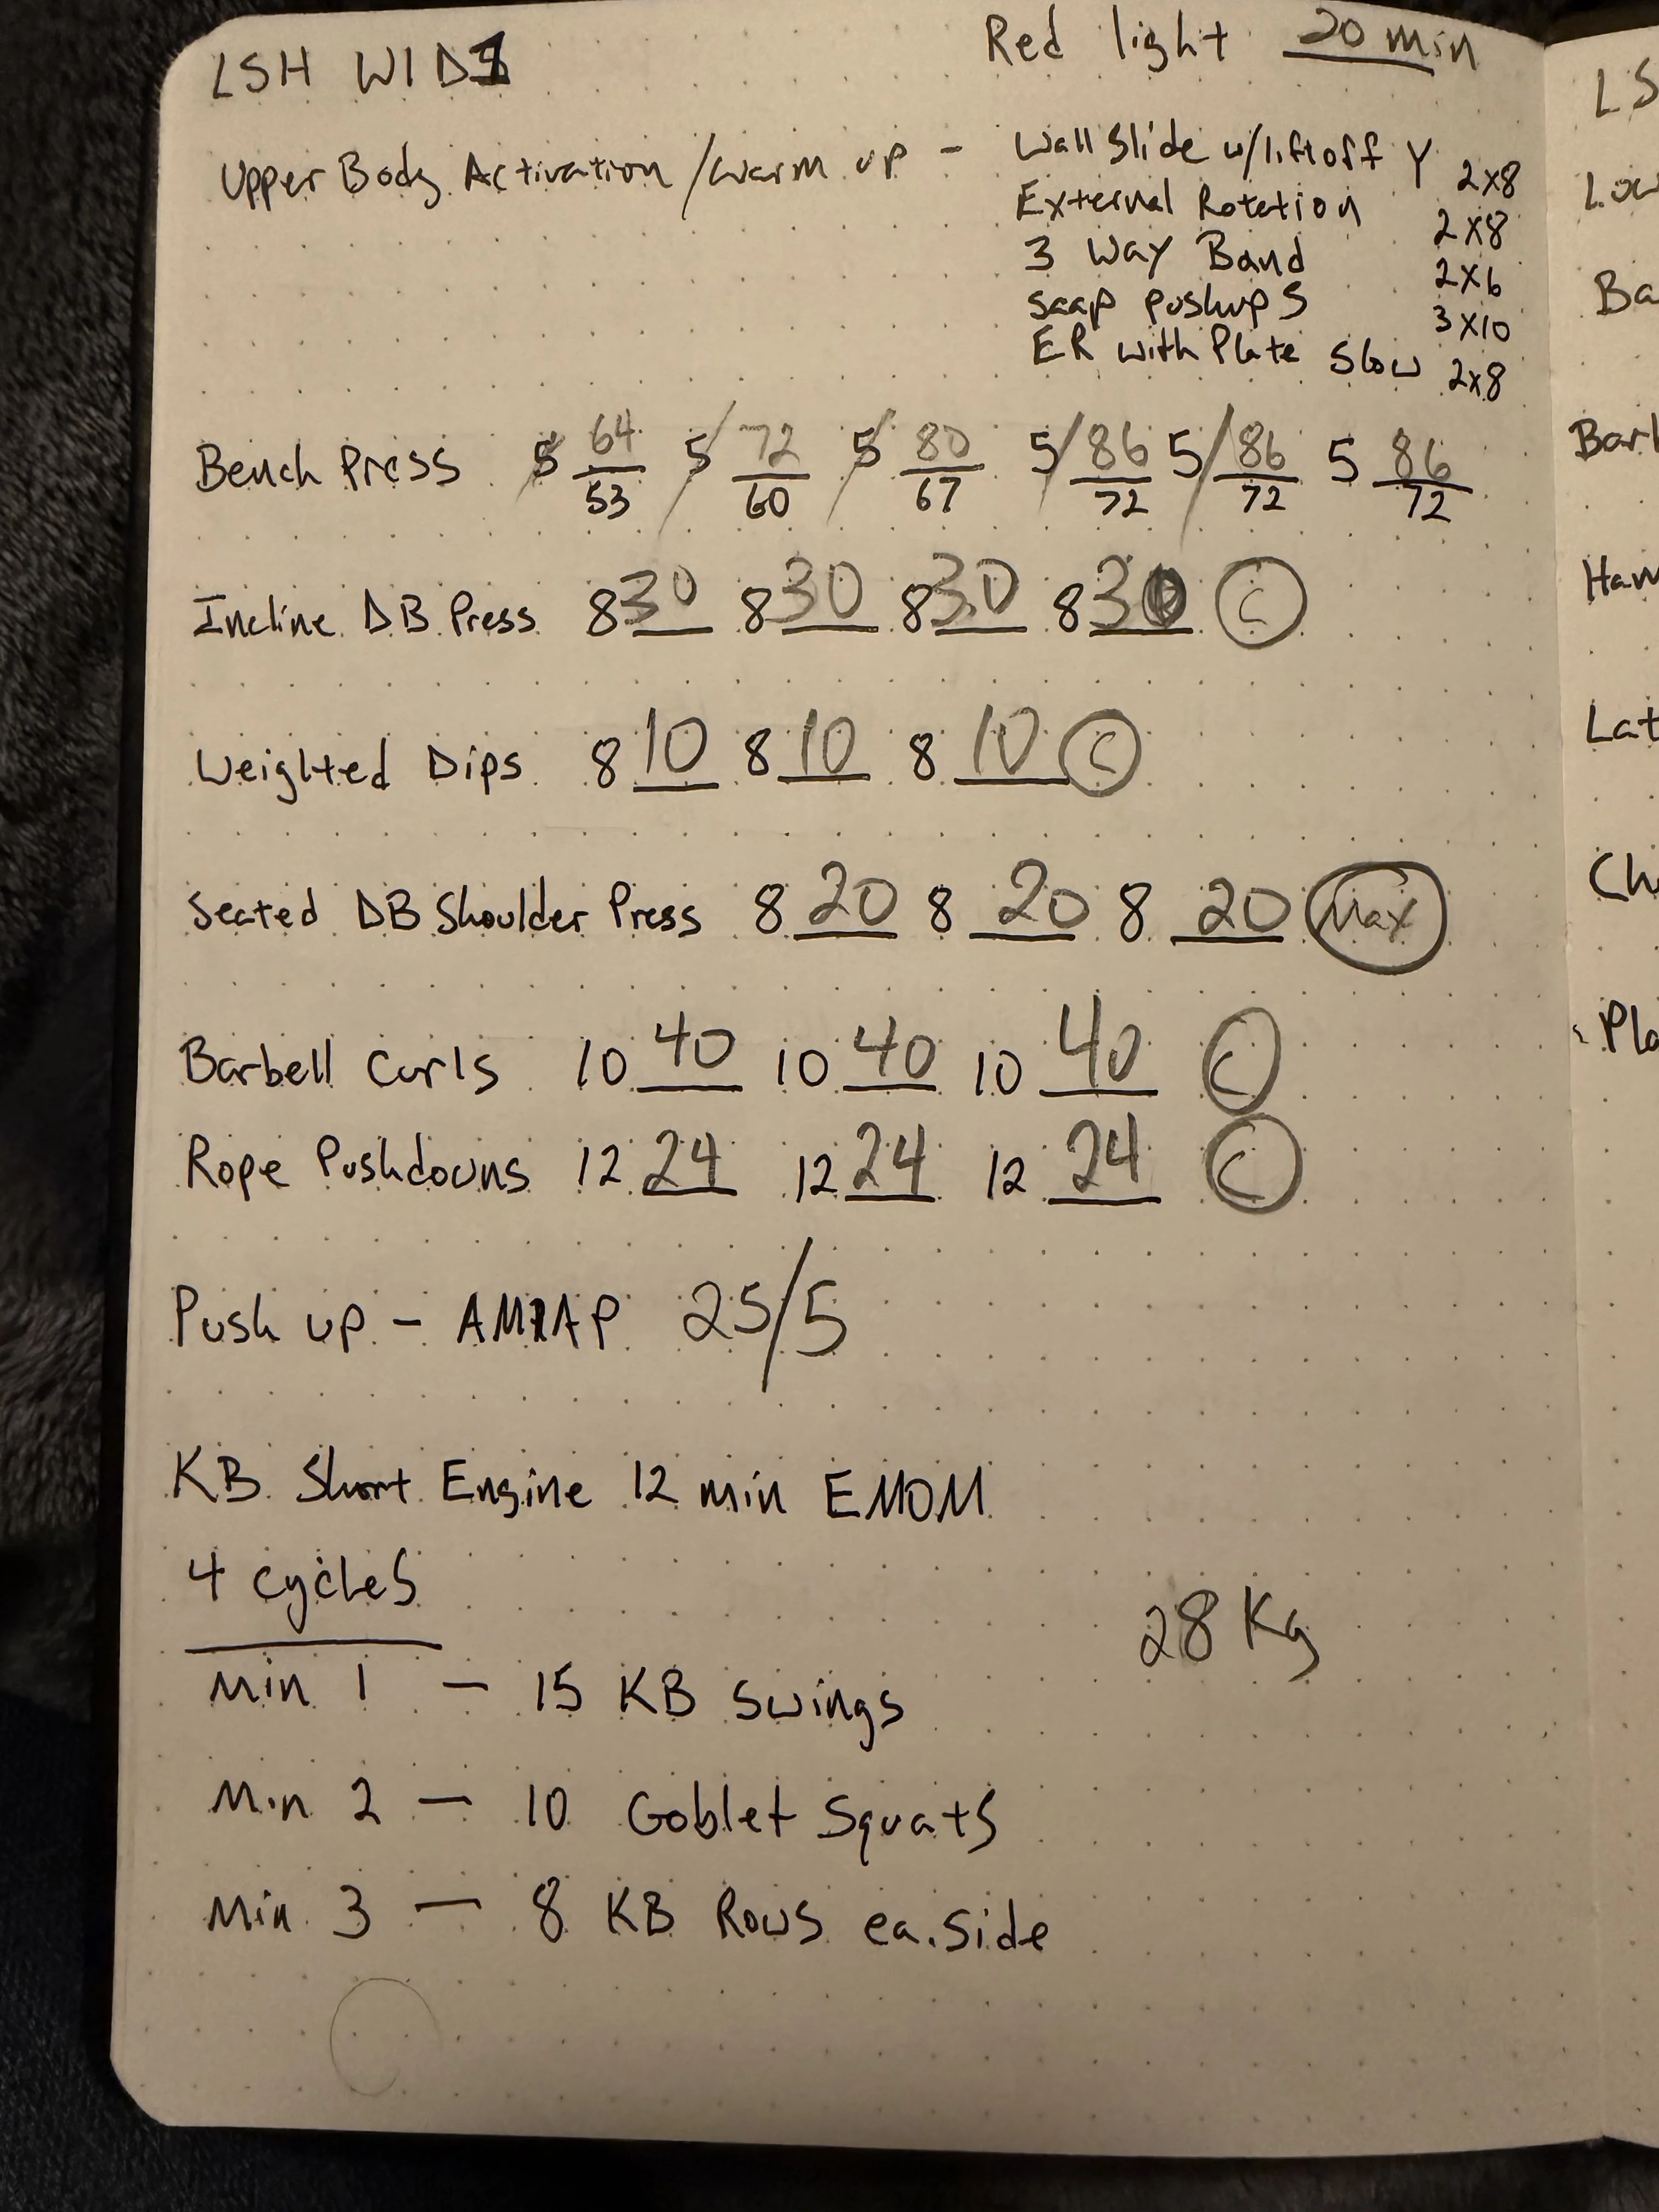 LSH W1D1
Red light 20 min
Upper Body Activation/Warm up - Wall Slide w/liftoff Y 2x8
External Rotation 2x8
3 Way Band 2x6
Scap pushups 3x10
ER with Plate Slow 2x8
Bench Press 5 64/53 5 72/60 5 80/67 5 86/72 5 86/72 5 86/72
Incline DB Press 8 30 8 30 8 30 8 30 C
Weighted Dips 8 10 8 10 8 10 C
Seated DB Shoulder Press 8 20 8 20 8 20 Max
Barbell Curls 10 40 10 40 10 40 C
Rope Pushdowns 12 24 12 24 12 24 C
Push up - AMRAP 25/5
KB Short Engine 12 min EMOM
4 cycles
28 Kg
Min 1 - 15 KB Swings
Min 2 - 10 Goblet Squats
Min 3 - 8 KB Rows ea. side
LS
Low
Ba
Barb
Ham
Lat
Ch
Pla